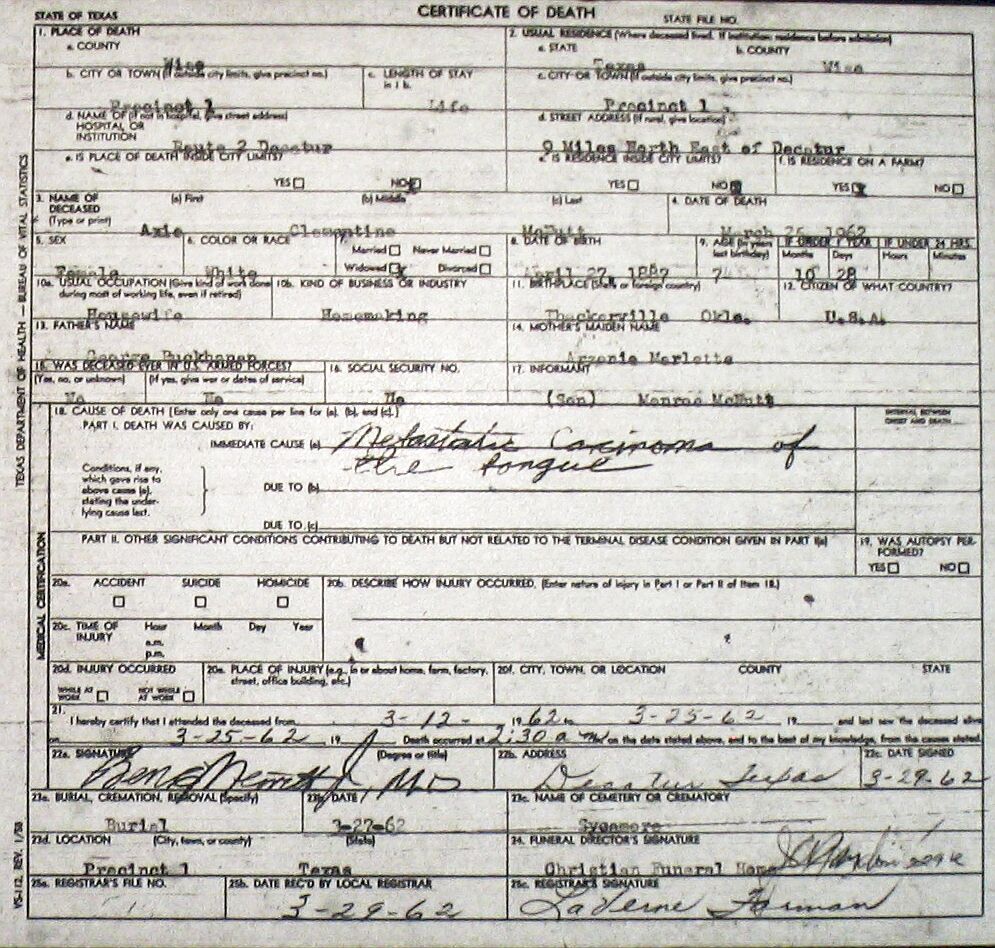 STATE OF TEXAS
CERTIFICATE OF DEATH
STATE FILE NO.
1. PLACE OF DEATH
a. COUNTY
Wise
2. USUAL RESIDENCE (Where deceased lived. If institution: residence before admission)
a. STATE
Texas
b. COUNTY
Wise
b. CITY OR TOWN (If outside city limits, give precinct no.)
Precinct 1
c. LENGTH OF STAY in 1 b.
Life
c. CITY OR TOWN (If outside city limits, give precinct no.)
Precinct 1
d. NAME OF (If not in hospital, give street address)
HOSPITAL OR
INSTITUTION
Route 2 Decatur
d. STREET ADDRESS (If rural, give location)
9 Miles North East of Decatur
e. IS PLACE OF DEATH INSIDE CITY LIMITS?
YES NO
e. IS RESIDENCE INSIDE CITY LIMITS?
YES NO
f. IS RESIDENCE ON A FARM?
YES X NO
3. NAME OF
DECEASED
(Type or print)
(a) First
(b) Middle
(c) Last
Axie Clementine McNutt
4. DATE OF DEATH
March 25, 1962
5. SEX
Female
6. COLOR OR RACE
White
7.
Married Never Married
Widowed X Divorced
8. DATE OF BIRTH
April 27, 1887
9. AGE (In years last birthday)
74
IF UNDER 1 YEAR
Months Days
10 28
IF UNDER 24 HRS.
Hours Minutes
10a. USUAL OCCUPATION (Give kind of work done
during most of working life, even if retired)
Housewife
10b. KIND OF BUSINESS OR INDUSTRY
Homemaking
11. BIRTHPLACE (State or foreign country)
Thackerville Okla.
12. CITIZEN OF WHAT COUNTRY?
U.S.A.
13. FATHER'S NAME
George Buckhanan
14. MOTHER'S MAIDEN NAME
Arzenie Marlette
15. WAS DECEASED EVER IN U.S. ARMED FORCES?
(Yes, no, or unknown) (If yes, give war or dates of service)
No No
16. SOCIAL SECURITY NO.
No
17. INFORMANT
(Son) Monroe McNutt
18. CAUSE OF DEATH [Enter only one cause per line for (a), (b), and (c).]
INTERVAL BETWEEN
ONSET AND DEATH
PART I. DEATH WAS CAUSED BY:
IMMEDIATE CAUSE (a) Metastatic Carcinoma of
the tongue
Conditions, if any,
which gave rise to
above cause (a),
stating the under-
lying cause last.
DUE TO (b)
DUE TO (c)
PART II. OTHER SIGNIFICANT CONDITIONS CONTRIBUTING TO DEATH BUT NOT RELATED TO THE TERMINAL DISEASE CONDITION GIVEN IN PART I(a)
19. WAS AUTOPSY PER-
FORMED?
YES NO
20a. ACCIDENT SUICIDE HOMICIDE
20b. DESCRIBE HOW INJURY OCCURRED. (Enter nature of injury in Part I or Part II of Item 18.)
20c. TIME OF
INJURY
Hour Month Day Year
a.m.
p.m.
20d. INJURY OCCURRED
WHILE AT WORK NOT WHILE AT WORK
20e. PLACE OF INJURY (e.g., in or about home, farm, factory,
street, office building, etc.)
20f. CITY, TOWN, OR LOCATION COUNTY STATE
21.
I hereby certify that I attended the deceased from 3-12- 1962 to 3-25-62 19 and last saw the deceased alive
on 3-25-62, 19 Death occurred at 2:30 a m on the date stated above, and to the best of my knowledge, from the causes stated.
22a. SIGNATURE
(Degree or title)
MD
22b. ADDRESS
Decatur Texas
22c. DATE SIGNED
3-29-62
23a. BURIAL, CREMATION, REMOVAL (Specify)
Burial
23b. DATE
3-27-62
23c. NAME OF CEMETERY OR CREMATORY
Sycamore
23d. LOCATION (City, town, or county) (State)
Precinct 1 Texas
24. FUNERAL DIRECTOR'S SIGNATURE
Christian Funeral Home
25a. REGISTRAR'S FILE NO.
25b. DATE REC'D BY LOCAL REGISTRAR
3-29-62
25c. REGISTRAR'S SIGNATURE
LaVerne Forman
TEXAS DEPARTMENT OF HEALTH — BUREAU OF VITAL STATISTICS
MEDICAL CERTIFICATION
VS-112, REV. 1/58